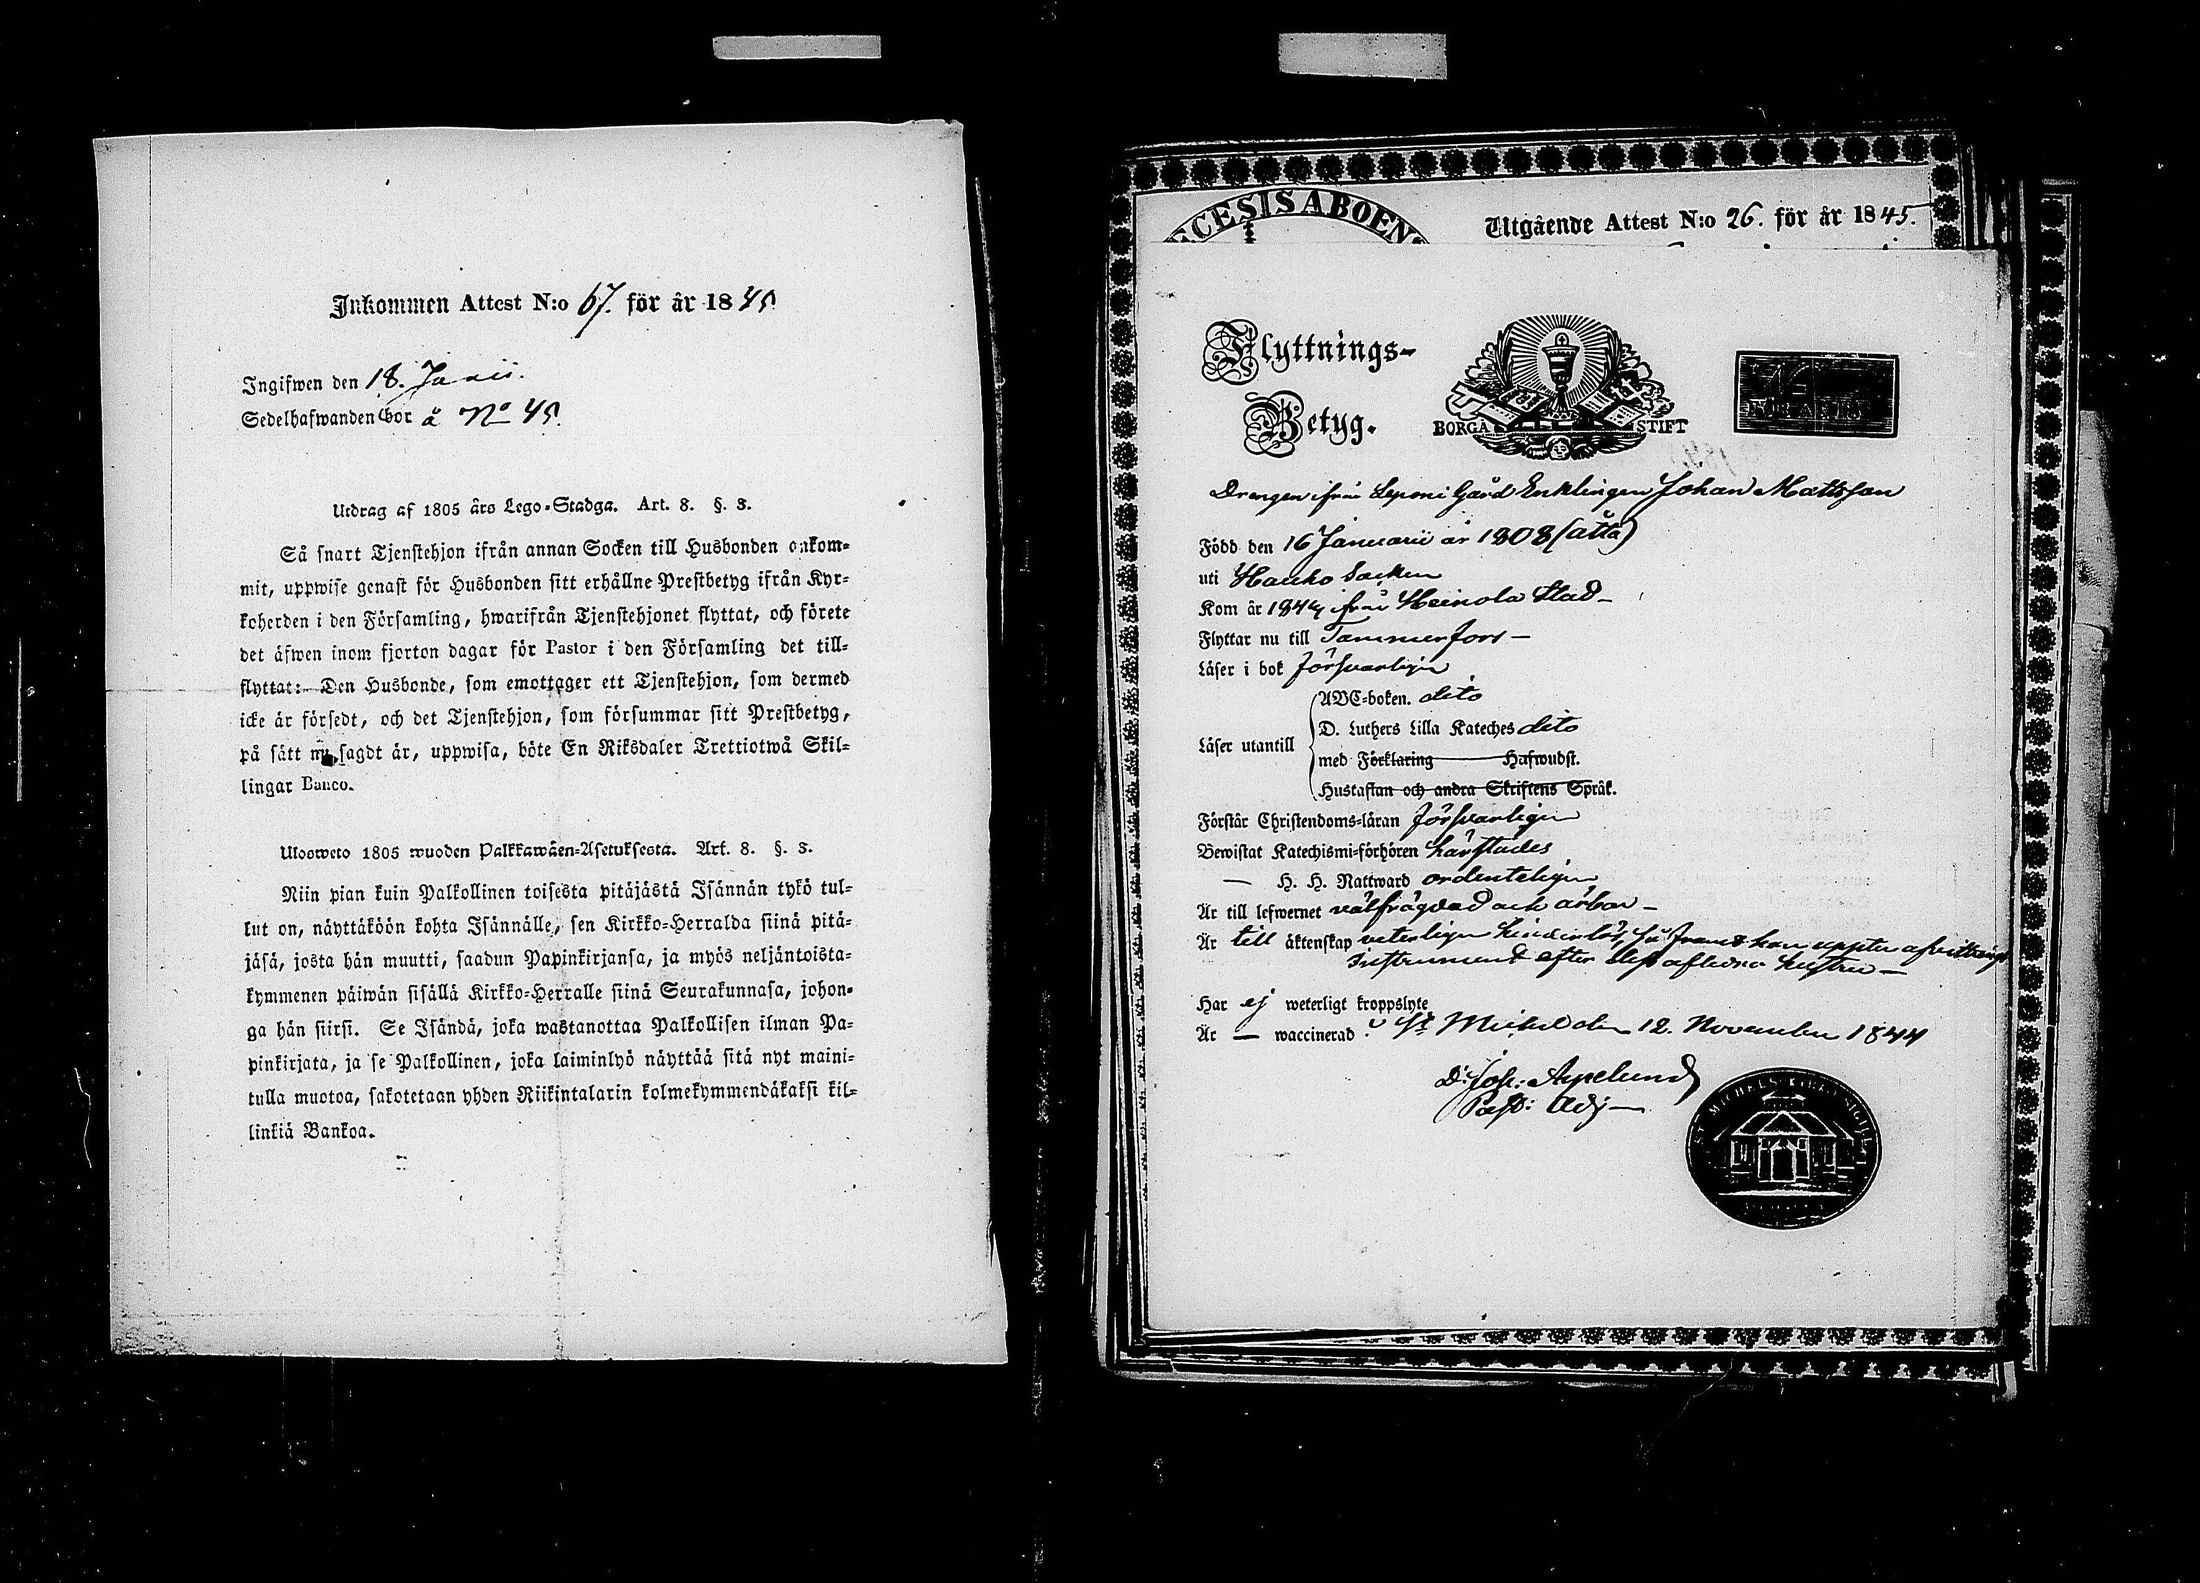 Inkommen Attest N:o 67. för år 1845
Ingifwen den 18. Junii.
Sedelhafwanden bor å No 45.
Utdrag af 1805 års Lego-Stadga. Art. 8. §. 3.
Så snart Tjenstehjon ifrån annan Socken till Husbonden ankom-
mit, uppwise genast för Husbonden sitt erhållne Prestbetyg ifrån Kyr-
koherden i den Församling, hwarifrån Tjenstehjonet flyttat, och förete
det äfwen inom fjorton dagar för Pastor i den Församling det till-
flyttat: Den Husbonde, som emottager ett Tjenstehjon, som dermed
icke är försedt, och det Tjenstehjon, som försummar sitt Prestbetyg,
på sätt nu sagdt är, uppwisa, böte En Riksdaler Trettiotwå Skil-
lingar Banco.
Ulosweto 1805 wuoden Palkkawäen-Asetuksesta. Art. 8. §. 3.
Niin pian kuin Palkollinen toisesta pitäjästä Isännän tykö tul-
lut on, näyttäköön kohta Isännälle, sen Kirkko-Herralda siinä pitä-
jäsä, josta hän muutti, saadun Papinkirjansa, ja myös neljäntoista-
kymmenen päiwän sisällä Kirkko-Herralle siinä Seurakunnasa, johon-
ga hän siirsi. Se Isändä, joka wastanottaa Palkollisen ilman Pa-
pinkirjata, ja se Palkollinen, joka laiminlyö näyttää sitä nyt maini-
tulla muotoa, sakotetaan yhden Riikintalarin kolmekymmendäkaksi kil-
linkiä Bankoa.
CESIS ABOEN
Utgående Attest N:o 26. för år 1845.
Flyttnings-
Betyg.
BORGÅ STIFT
Drengen ifrån Leponi Gård Enklingen Johan Mattsson
Född den 16 Januarii år 1808 (åtta)
uti Hauho Socken
Kom år 1844 ifrån Heinola Stad
Flyttar nu till Tammerfors
Läser i bok försvarligen
ABC-boken. dito
D. Luthers Lilla Kateches dito
Läser utantill
med Förklaring Hafwudst.
Hustaflan och andra Skriftens Språk.
Förstår Christendoms-läran försvarligen
Bewistat Katechismi-förhören härstädes
— H. H. Nattward ordenteligen
Är till lefwernet välfrägdad och ärbar
Är till äktenskap veterligen hinderlös, så framt han uppter afvittrings
Instrument efter dess aflidna hustru
Har ej weterligt kroppslyte
Är — waccinerad St Michel den 12. November 1844
D: Jos: Aspelund
Past: Adj
ST MICHELS KYRKO SIGILL